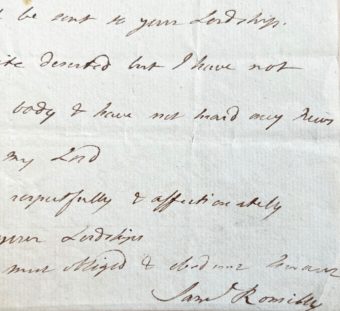 be sent to your Lordship.
deserted but I have not
body & have not heard any News
my Lord
respectfully & affectionately
your Lordships
most obliged & obedient Servant
Sam.l Romilly